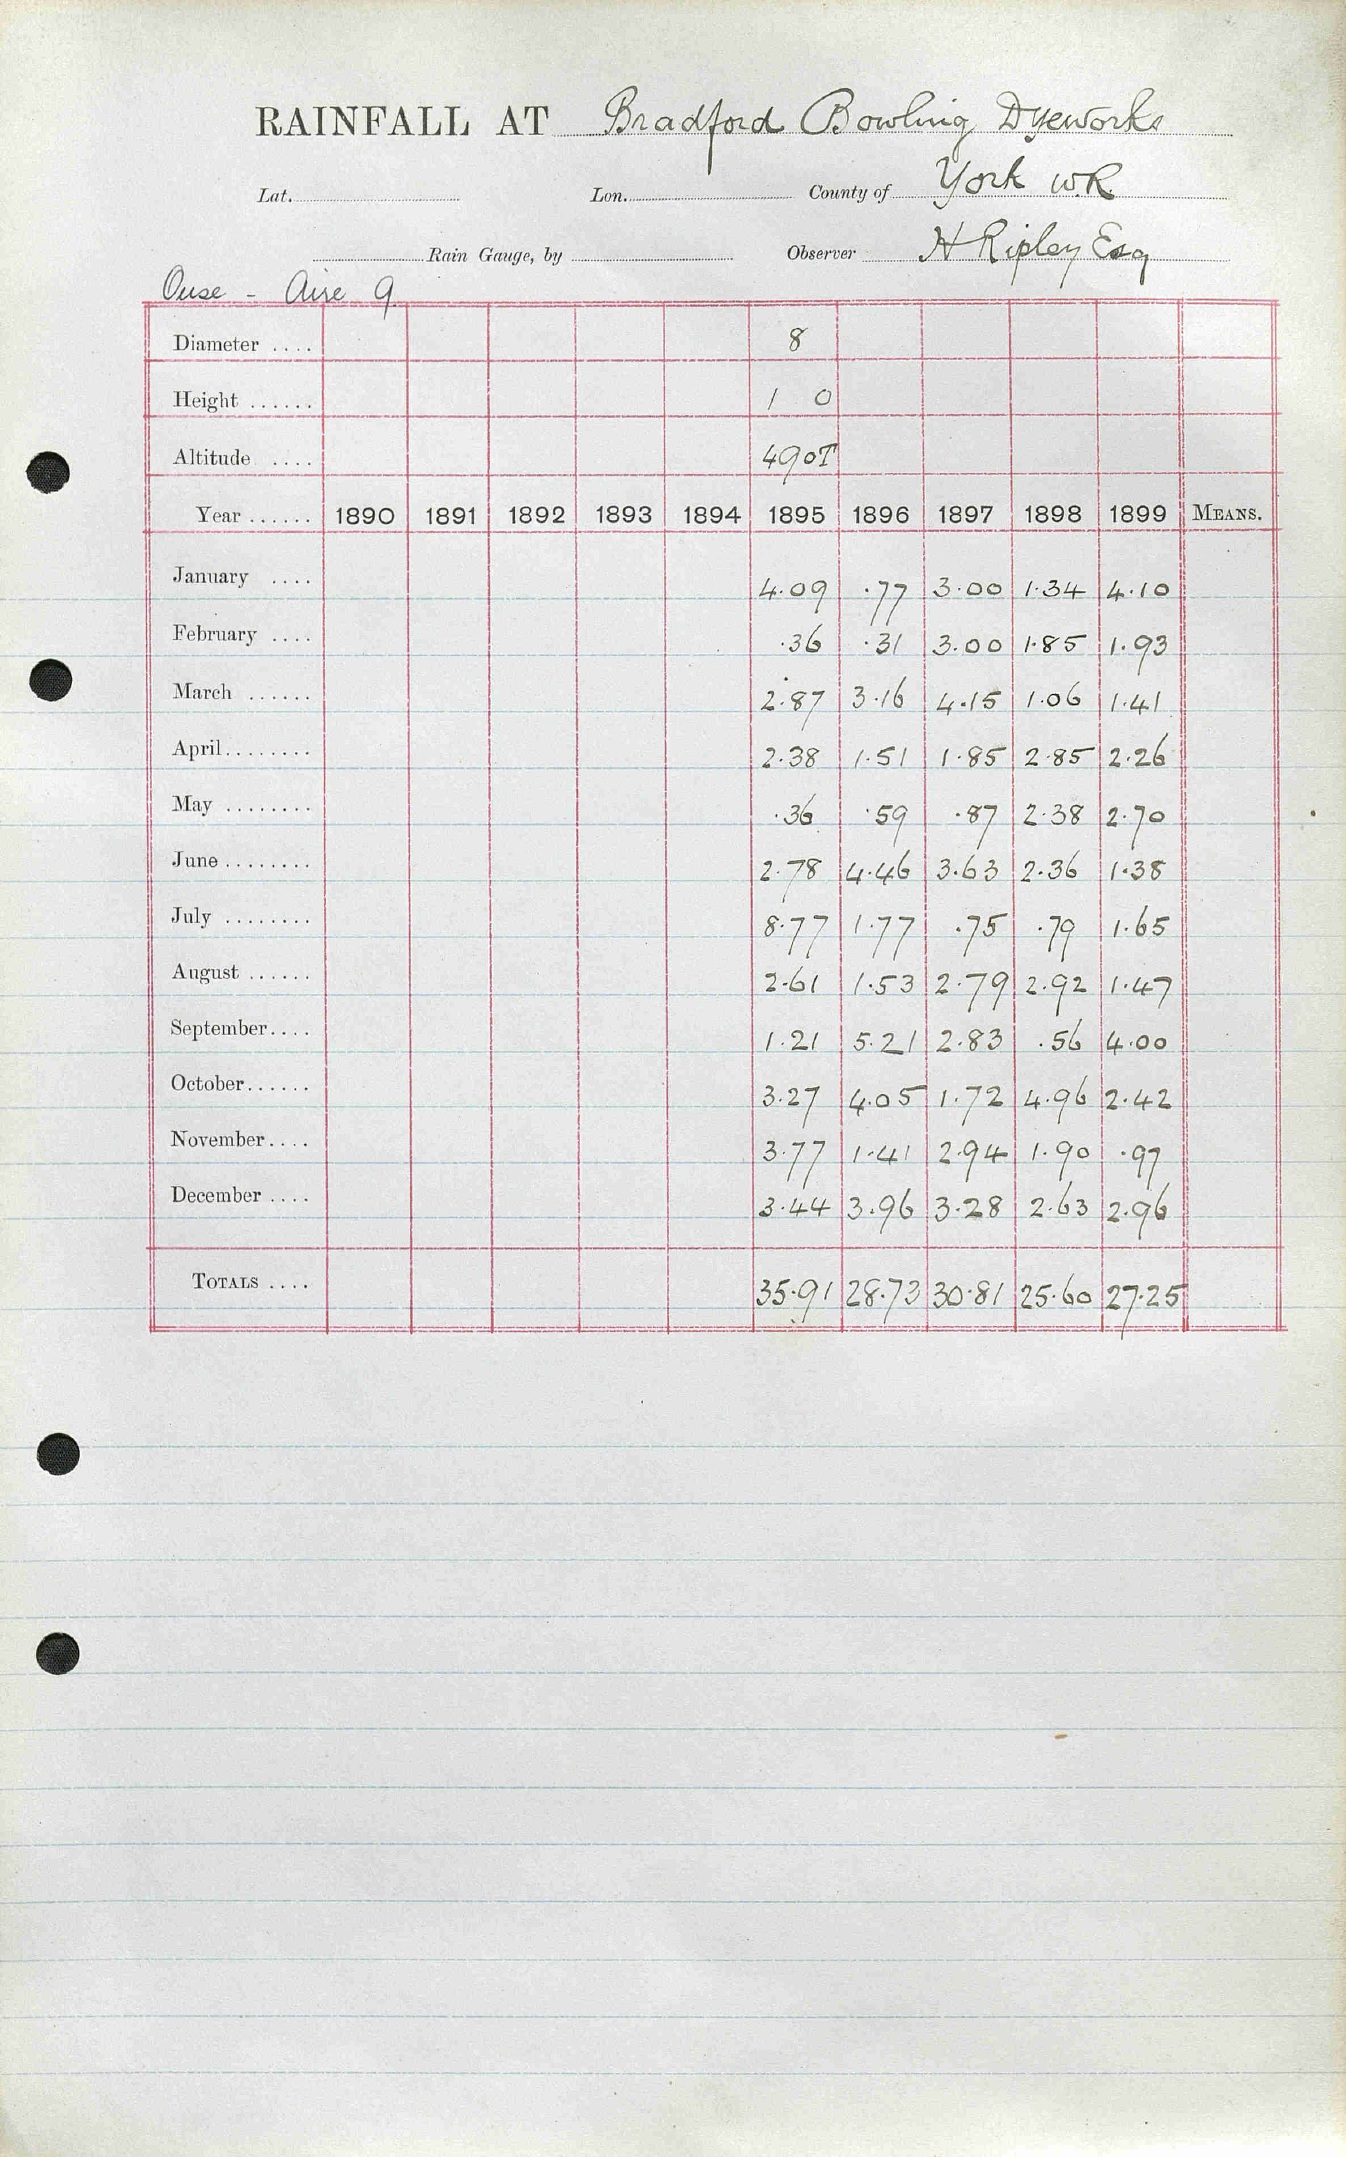 RAINFALL AT Bradford Bowling Dyeworks
Lat. Lon. County of York W.R.
Rain Gauge, by Observer H Ripley Esq
Ouse - Aire 9.
Diameter .... 8
Height ...... 1 0
Altitude .... 490T
Year ...... 1890 1891 1892 1893 1894 1895 1896 1897 1898 1899 MEANS.
January .... 4.09 .77 3.00 1.34 4.10
February .... .36 .31 3.00 1.85 1.93
March ...... 2.87 3.16 4.15 1.06 1.41
April........ 2.38 1.51 1.85 2.85 2.26
May ........ .36 .59 .87 2.38 2.70
June ........ 2.78 4.46 3.63 2.36 1.38
July ........ 8.77 1.77 .75 .79 1.65
August ...... 2.61 1.53 2.79 2.92 1.47
September.... 1.21 5.21 2.83 .56 4.00
October...... 3.27 4.05 1.72 4.96 2.42
November.... 3.77 1.41 2.94 1.90 .97
December .... 3.44 3.96 3.28 2.63 2.96
TOTALS .... 35.91 28.73 30.81 25.60 27.25